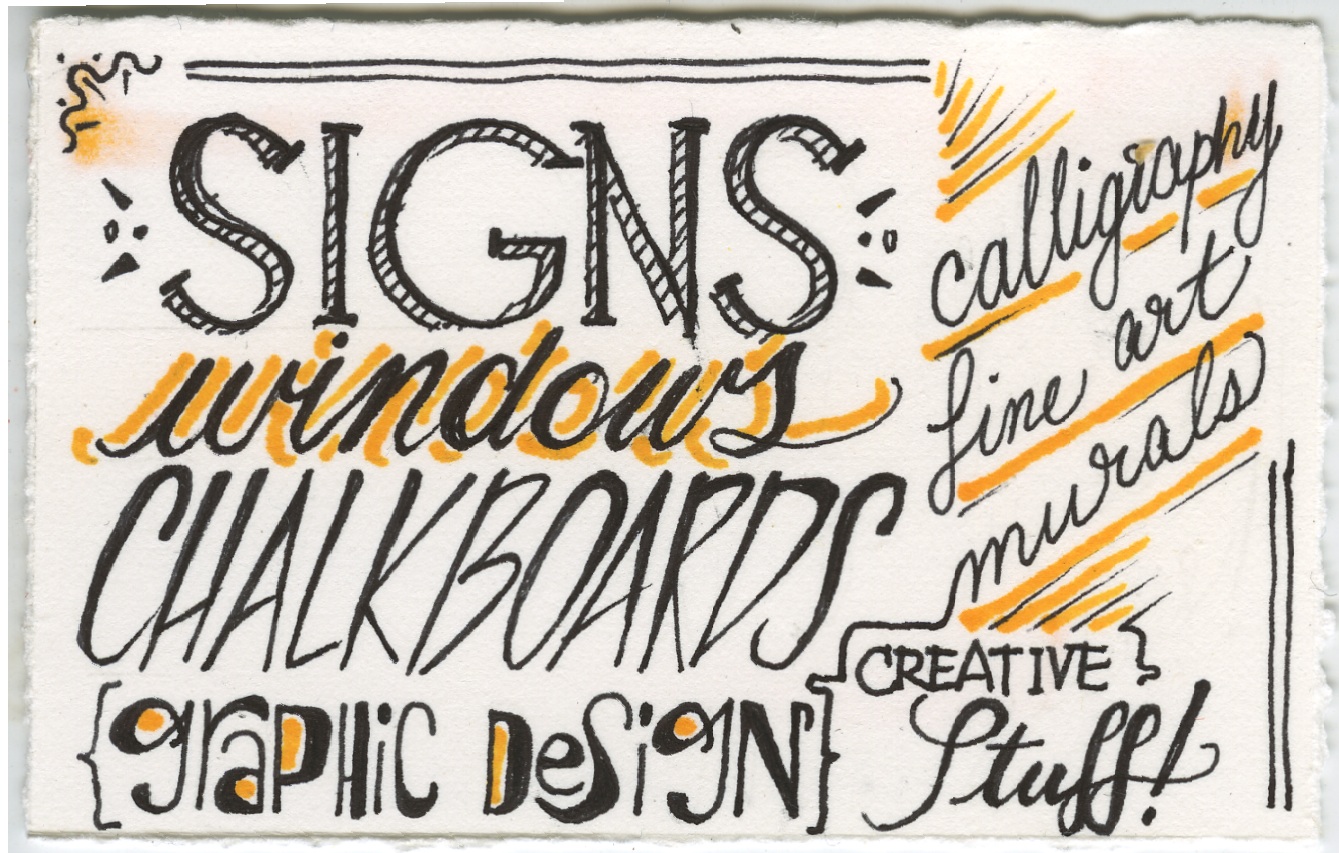 SIGNS
windows
CHALKBOARDS
{graPHiC DeSigN}
calligraphy
fine art
murals
CREATIVE
Stuff!